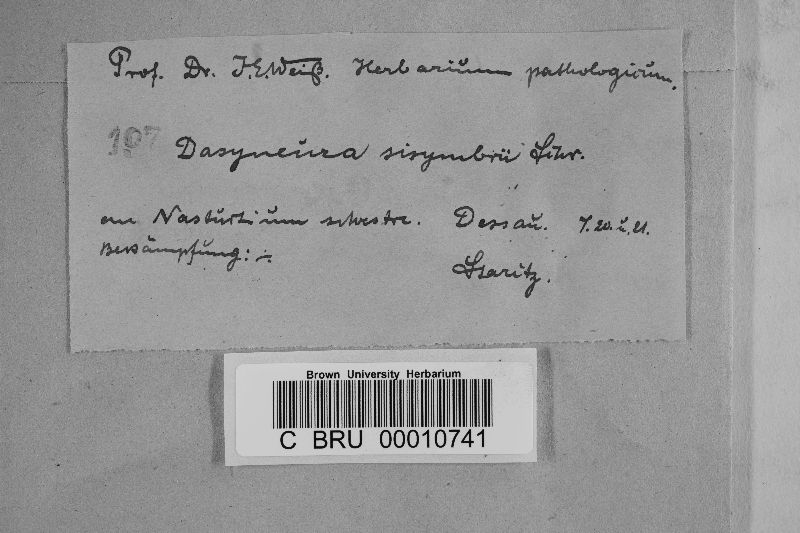 Prof. Dr. J.E. Weiß. Herbarium pathologicum.
197 Dasyneura sisymbrii Schr.
am Nasturtium silvestre. Dessau. 7.20. u. 21.
Bekämpfung: -.
Staritz.
Brown University Herbarium
C BRU 00010741